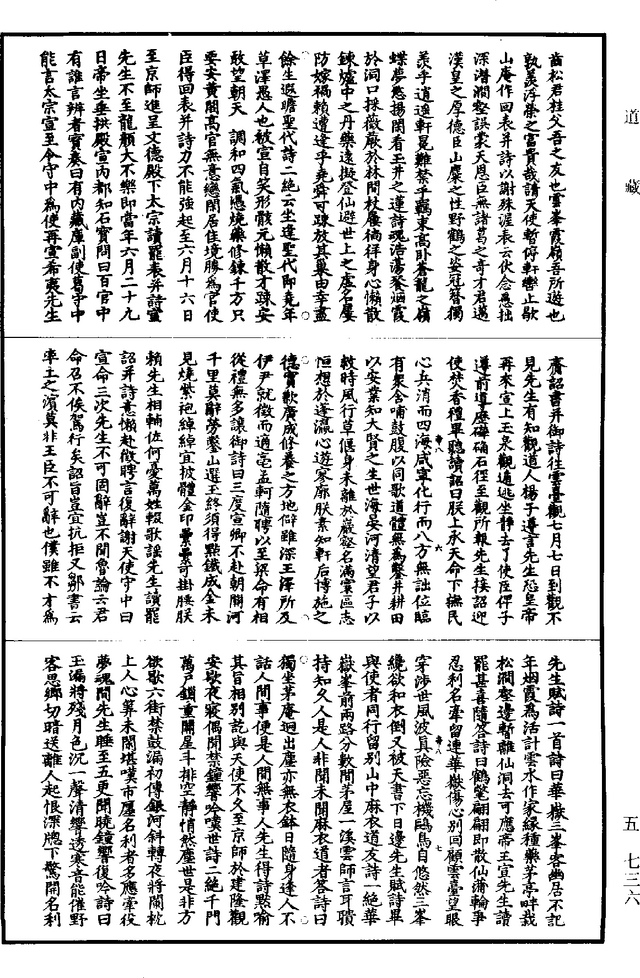 道藏
齒松君桂父吾之友也雲峯霞嶺吾所遊也
孰羨浮榮之富貴哉請天使暫停軒轡止歇
山庵作回表并詩以謝殊渥表云伏念愚拙
深潛澗壑誤蒙天恩臣無諸葛之奇才君邁
漢皇之厚德臣山麋之性野鶴之姿冠簪獨
羨乎逍遥軒冕難禁乎羈束高卧蒼龍之嶺
蝶夢悠揚閑看玉井之蓮詩魂浩蕩餐烟霞
於洞口採薇蕨於林間杖屨徜徉身心懶散
鍊爐中之丹藥遠擬登仙避世上之虛名屢
防嫁禍賴遭逢乎堯舜可疎放其巢由幸盡
餘生遐瞻聖代詩二絶云坐逢聖代即堯年
草澤愚人也被宣自笑形骸元懶散才疎安
敢望朝天 調和四氣憑燒藥修鍊千方只
要安黄閣高官無意戀閑居佳境勝為官使
臣得回表并詩力不能強起至六月十六日
至京師進呈文德殿下太宗讀罷表并詩宣
先生不至龍顔大不樂即當年六月二十九
日帝坐垂拱殿宣內都知石實問曰百官中
有誰言辨者實奏曰有內藏庫副使葛守中
能言太宗宣至令守中為使再宣希夷先生
齎詔書并御詩往雲臺觀七月七日到觀不
見先生有知觀道人楊子邊言先生恐皇帝
再來宣上玉泉觀遁逃坐靜去了使臣俾子
邊前導歷磽确石徑至觀所報先生接詔迎
使焚香禮畢聽讀詔曰朕上承天命下撫民
華八 六
心兵消而四海咸寧化行而八方無詘位臨
有衆含哺鼓腹以同歌道體無為鑿井耕田
以安業知大賢之生世海晏河清望君子以
救時風行草偃身未離於巖壑名滿寰區志
恒想於蓬瀛心遊寥廓朕素知軒后博施之
德實歎廣成修養之方地僻雖深王澤所及
伊尹就徵而適亳孟軻隨聘以至梁命有相
從禮無多讓御詩曰三度宣卿不赴朝關河
千里莫辭勞鑿山選玉終須得點鐵成金未
見燒紫袍綽綽宜披體金印纍纍可掛腰朕
賴先生相輔佐何憂萬姓輟歌謡先生讀罷
詔并詩意懶赴徵聘言復辭謝天使守中曰
宣命三次先生不可固辭豈不聞魯論云君
命召不俟駕行矣詔旨豈宜抗拒又鄒書云
率土之濱莫非王臣不可辭也僕雖不才為
先生賦詩一首詩曰華嶽三峯客幽居不記
年烟霞為活計雲水作家緣種藥茅亭畔栽
松澗壑邊暫離仙洞去可應帝王宣先生讀
罷甚喜隨答詩曰鶴氅翩翩即散仙蒲輪爭
忍利名牽留連華嶽傷心別回顧雲臺望眼
華八 七
穿涉世風波真險惡忘機鷗鳥自悠然三峯
纔欲和衣倒又被天書下日邊先生賦詩畢
與使者同行留別山中麻衣道友詩一絶華
嶽峯前兩路分數間茅屋一溪雲師言耳聵
持知久人是人非聞未聞麻衣道者答詩曰
獨坐茅庵迥出塵亦無衣鉢日隨身逢人不
話人間事便是人間無事人先生得詩默喻
其旨相別訖與天使不久至京師於建隆觀
安歇夜寢偶聞禁鐘響吟嘆世詩二絶千門
萬戶鎖重關星斗排空靜悄然塵世是非方
欲歇六街禁鼓漏初傳銀河斜轉夜將闌枕
上人心算未閑堪嘆市廛名利者多應牽役
夢魂間先生睡至五更聞曉鐘響復吟詩曰
玉漏將殘月色沉一聲清響透寒音能催野
客思鄉切暗送離人起恨深牎下驚開名利
五 七三六